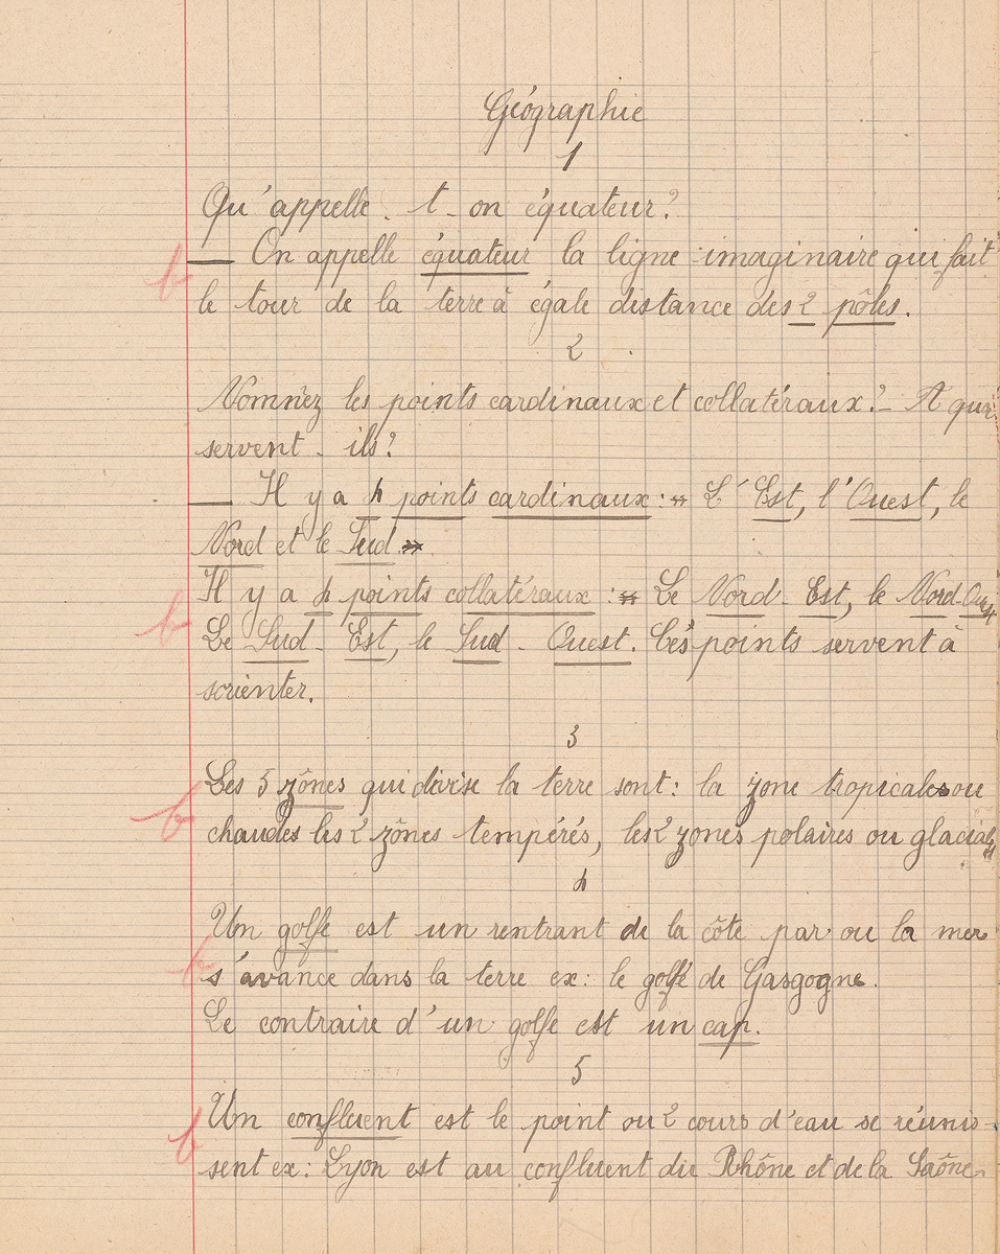 Géographie
1
Qu'appelle-t-on équateur?
— On appelle équateur la ligne imaginaire qui fait
le tour de la terre à égale distance des 2 pôles.
2
Nommez les points cardinaux et collatéraux? - A qui
servent-ils?
— Il y a 4 points cardinaux: L'Est, l'Ouest, le
Nord et le Sud.
Il y a 4 points collatéraux: Le Nord-Est, le Nord-Ouest
Le Sud-Est, le Sud-Ouest. Ces points servent à
sorienter.
3
Les 5 zônes qui divise la terre sont: la zone tropicale ou
chaudes les 2 zônes tempérés, les 2 zones polaires ou glaciales
4
Un golfe est un rentrant de la côte par ou la mer
s'avance dans la terre ex: le golfe de Gasgogne.
Le contraire d'un golfe est un cap.
5
Un confluent est le point ou 2 cours d'eau se réunis-
sent ex: Lyon est au confluent du Rhône et de la Saône.